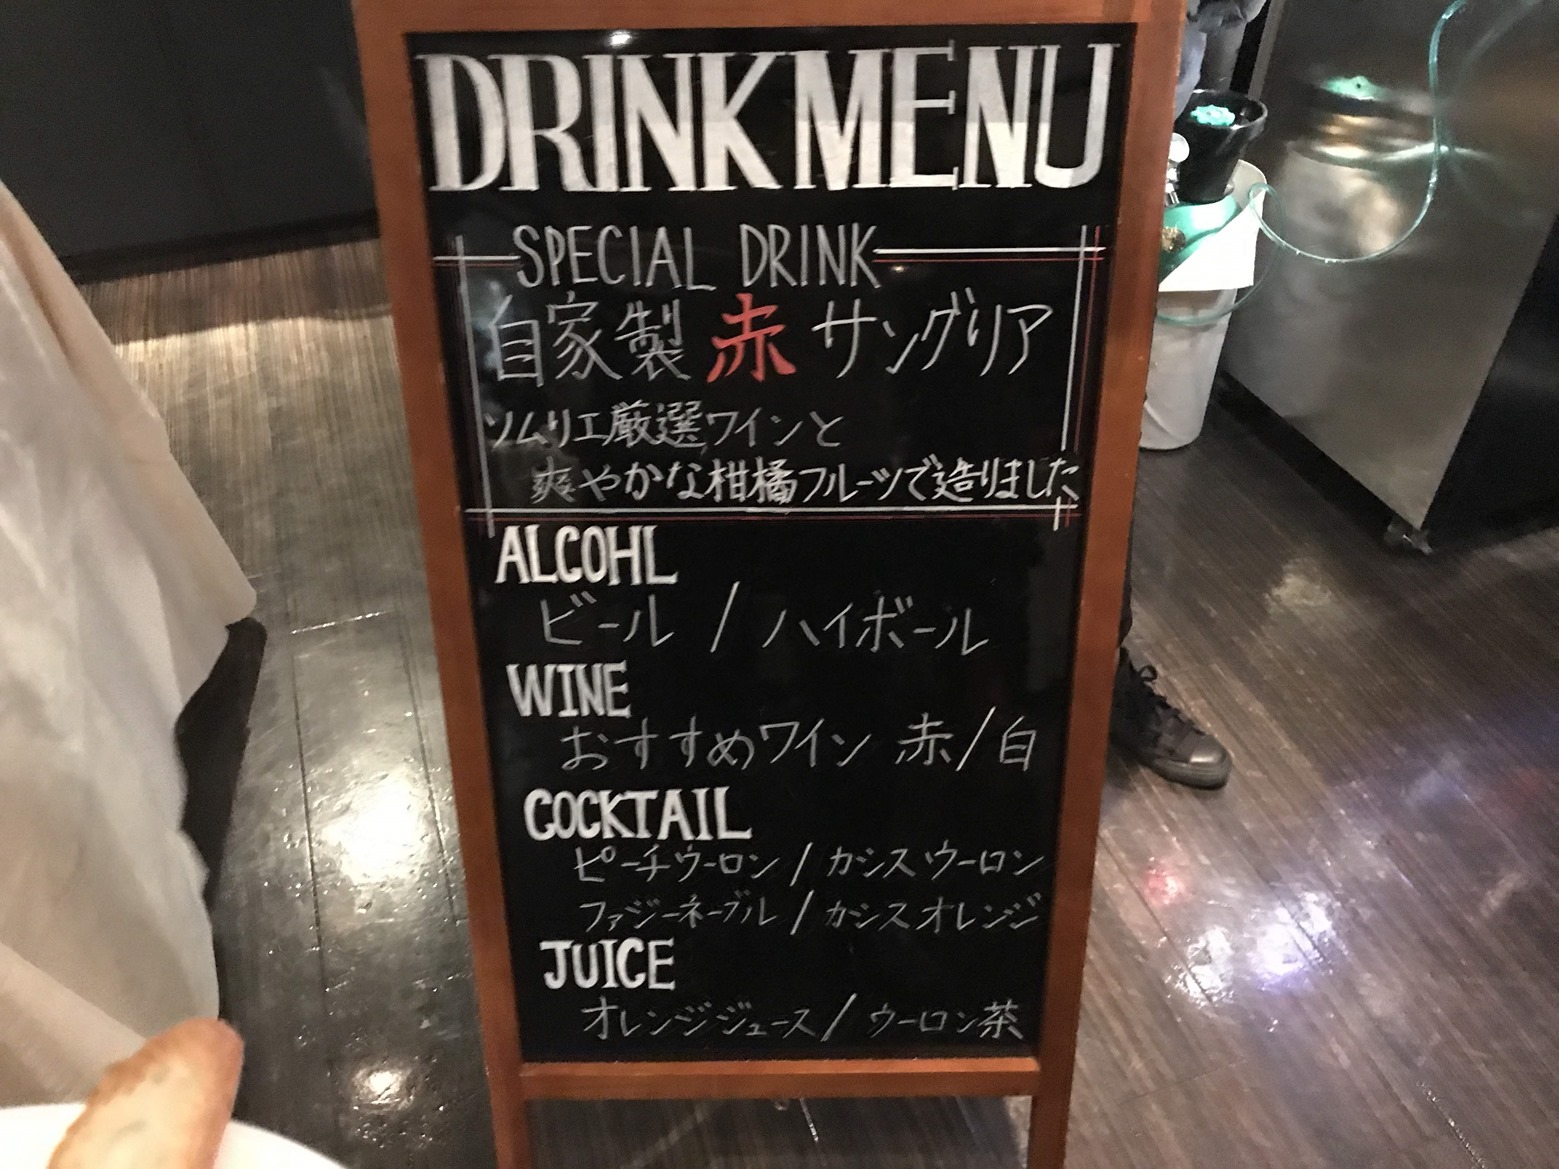 DRINK MENU
SPECIAL DRINK
自家製 赤 サングリア
ソムリエ厳選ワインと
爽やかな柑橘フルーツで造りました
ALCOHL
ビール / ハイボール
WINE
おすすめワイン 赤/白
COCKTAIL
ピーチウーロン / カシスウーロン
ファジーネーブル / カシスオレンジ
JUICE
オレンジジュース / ウーロン茶